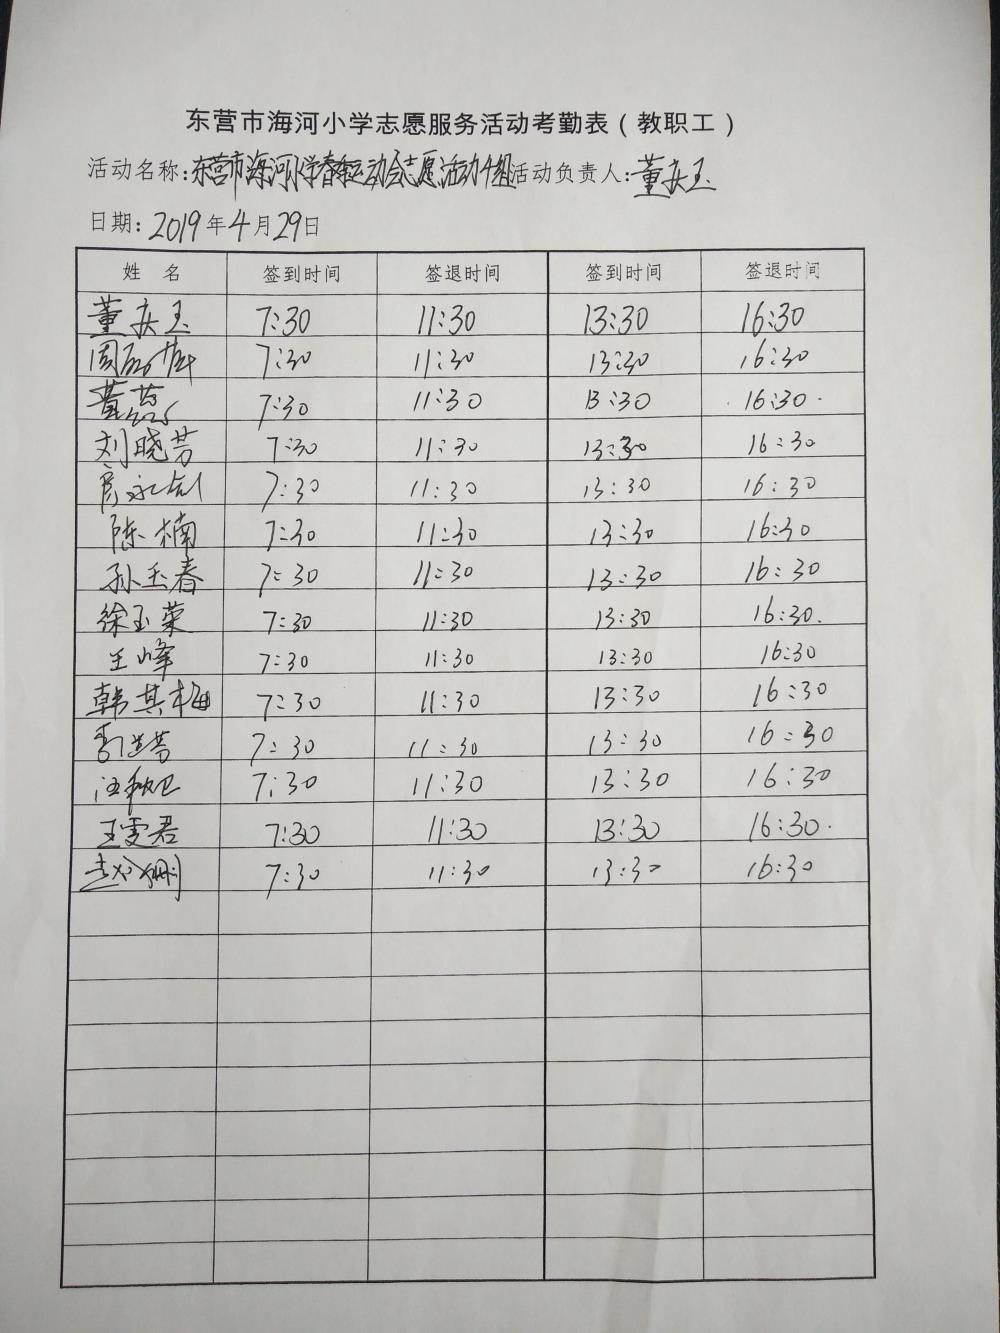 东营市海河小学志愿服务活动考勤表（教职工）
活动名称：东营市海河小学春季运动会志愿活动 活动负责人：董庆玉
日期：2019年4月29日
姓 名 签到时间 签退时间 签到时间 签退时间
董庆玉 7:30 11:30 13:30 16:30
周 7:30 11:30 13:30 16:30
董蕊 7:30 11:30 13:30 16:30
刘晓芳 7:30 11:30 13:30 16:30
7:30 11:30 13:30 16:30
陈楠 7:30 11:30 13:30 16:30
孙玉春 7:30 11:30 13:30 16:30
徐玉荣 7:30 11:30 13:30 16:30
王峰 7:30 11:30 13:30 16:30
韩其梅 7:30 11:30 13:30 16:30
7:30 11:30 13:30 16:30
7:30 11:30 13:30 16:30
王雯君 7:30 11:30 13:30 16:30
7:30 11:30 13:30 16:30